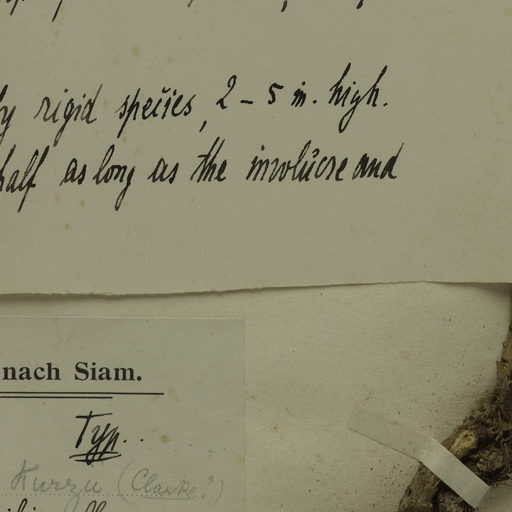 rigid species, 2 – 5 in. high.
half as long as the involucre and
nach Siam.
Typ.
Kurzii (Clarke?)